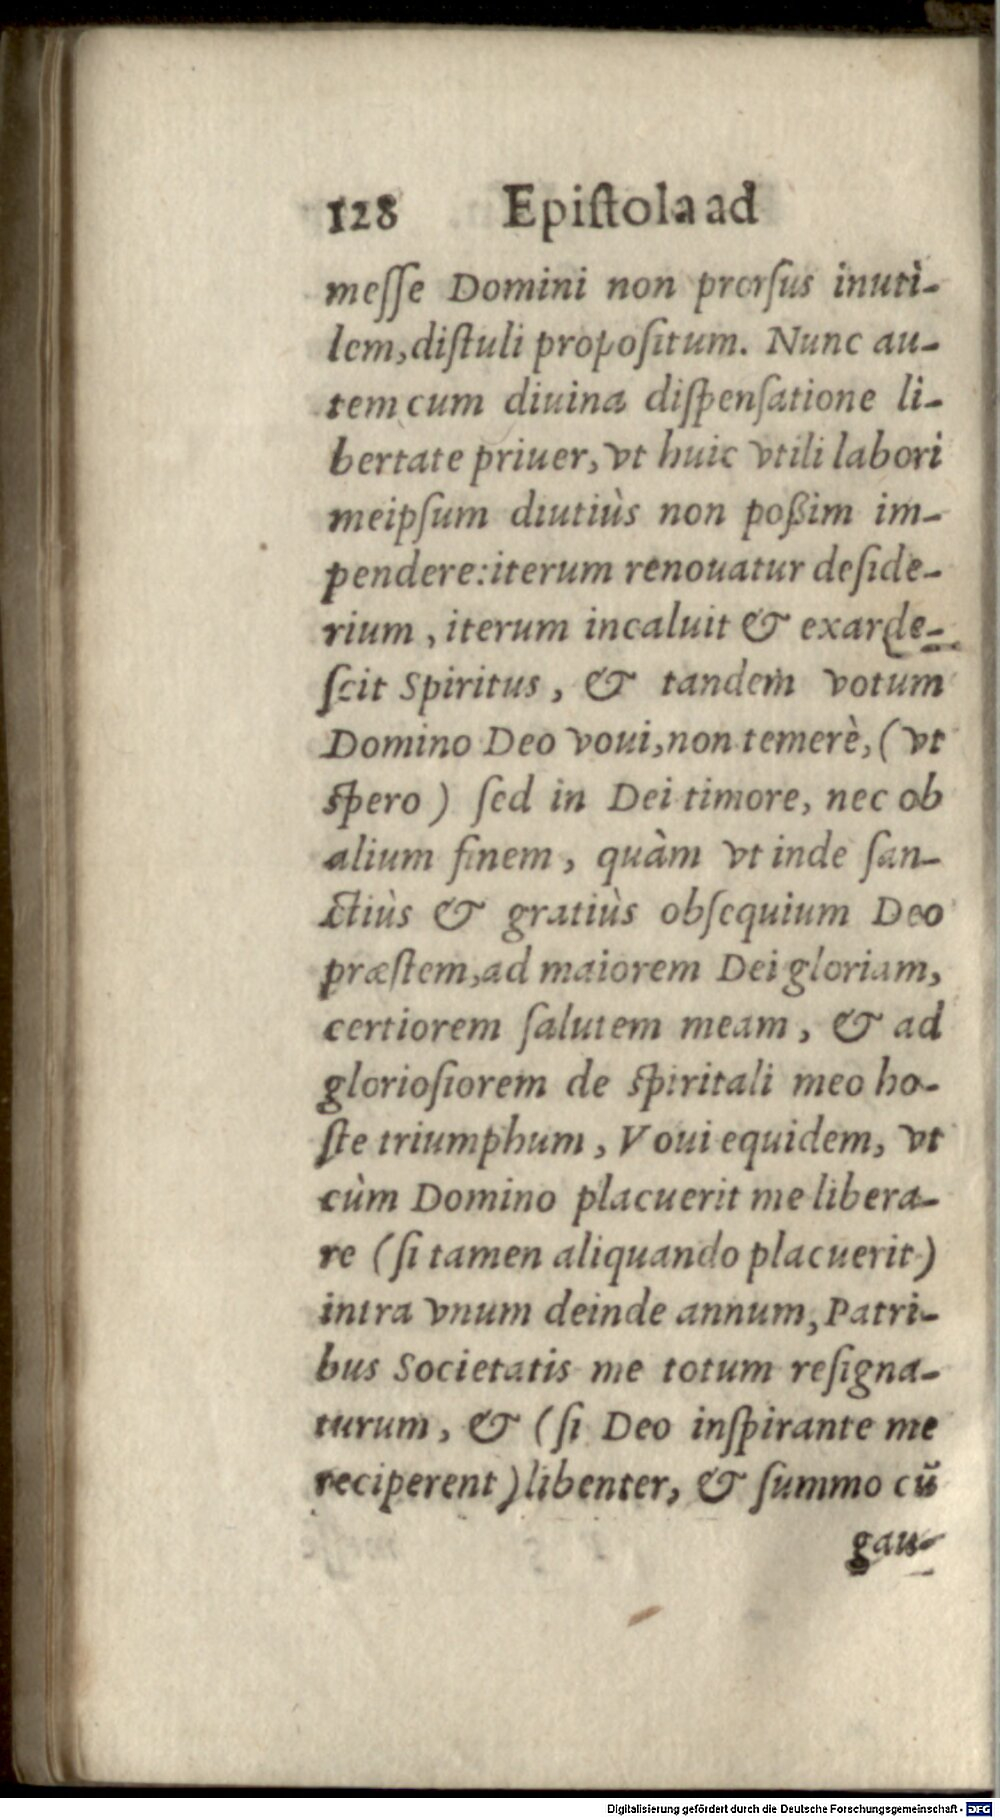 128 Epiſtola ad
meſſe Domini non prorſus inuti-
lem, diſtuli propoſitum. Nunc au-
tem cum diuina diſpenſatione li-
bertate priuer, vt huic vtili labori
meipſum diutiùs non poßim im-
pendere: iterum renouatur deſide-
rium, iterum incaluit & exarde-
ſcit Spiritus, & tandem votum
Domino Deo voui, non temerè, (vt
ſpero) ſed in Dei timore, nec ob
alium finem, quàm vt inde ſan-
ctiùs & gratiùs obſequium Deo
præſtem, ad maiorem Dei gloriam,
certiorem ſalutem meam, & ad
glorioſiorem de ſpiritali meo ho-
ſte triumphum, Voui equidem, vt
cùm Domino placuerit me libera-
re (ſi tamen aliquando placuerit)
intra vnum deinde annum, Patri-
bus Societatis me totum reſigna-
turum, & (ſi Deo inſpirante me
reciperent) libenter, & ſummo cū
gau-
Digitalisierung gefördert durch die Deutsche Forschungsgemeinschaft - DFG